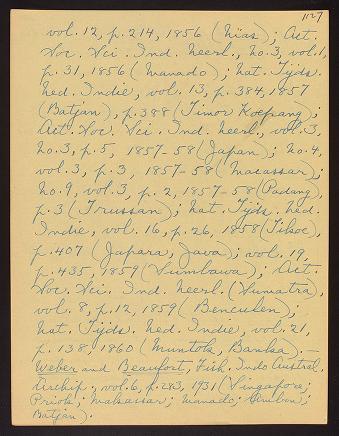 1127
vol. 12, p. 214, 1856 (Nias); Act.
Soc. Sci. Ind. Neerl., no. 3, vol. 1,
p. 31, 1856 (Manado); Nat. Tijds.
Ned. Indie, vol. 13, p. 384, 1857
(Batjan), p. 388 (Timor Koepang);
Act. Soc. Sci. Ind. Neerl., vol. 3,
no. 3, p. 5, 1857-58 (Japan); no. 4,
vol. 3, p. 3, 1857-58 (Macassar);
no. 9, vol. 3, p. 2, 1857-58 (Padang),
p. 3 (Trussan); Nat. Tijds. Ned.
Indie, vol. 16, p. 26, 1858 (Tilsoe),
p. 407 (Japara, Java); vol. 19,
p. 435, 1859 (Sumbawa); Act.
Soc. Sci. Ind. Neerl. (Sumatra)
vol. 8, p. 12, 1859 (Benculen);
Nat. Tijds. Ned. Indie, vol. 21,
p. 138, 1860 (Muntok, Banka).—
Weber and Beaufort, Fish. Indo Austral.
Archip., vol. 6, p. 283, 1931 (Singapore;
Priok; Makassar; Manado; Ambon;
Batjan).